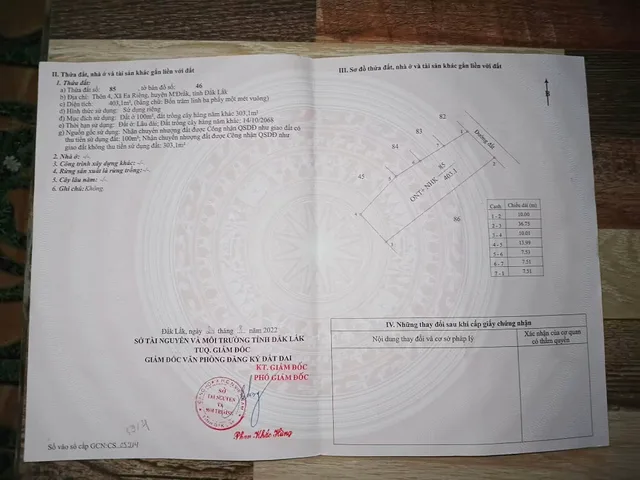 II. Thửa đất, nhà ở và tài sản khác gắn liền với đất
1. Thửa đất:
a) Thửa đất số: 85 tờ bản đồ số: 46
b) Địa chỉ: Thôn 4, Xã Ea Riêng, huyện M'Đrắk, tỉnh Đắk Lắk
c) Diện tích: 403,1m², (bằng chữ: Bốn trăm linh ba phẩy một mét vuông)
d) Hình thức sử dụng: Sử dụng riêng
đ) Mục đích sử dụng: Đất ở 100m², đất trồng cây hàng năm khác 303,1m²
e) Thời hạn sử dụng: Đất ở: Lâu dài; Đất trồng cây hàng năm khác: 14/10/2068
g) Nguồn gốc sử dụng: Nhận chuyển nhượng đất được Công nhận QSDĐ như giao đất có
thu tiền sử dụng đất: 100m²; Nhận chuyển nhượng đất được Công nhận QSDĐ như giao
đất không thu tiền sử dụng đất: 303,1m²
2. Nhà ở: -/-
3. Công trình xây dựng khác: -/-
4. Rừng sản xuất là rừng trồng: -/-
5. Cây lâu năm: -/-
6. Ghi chú: Không.
Đắk Lắk, ngày tháng năm 2022
SỞ TÀI NGUYÊN VÀ MÔI TRƯỜNG TỈNH ĐẮK LẮK
TUQ. GIÁM ĐỐC
GIÁM ĐỐC VĂN PHÒNG ĐĂNG KÝ ĐẤT ĐAI
KT. GIÁM ĐỐC
PHÓ GIÁM ĐỐC
SỞ
TÀI NGUYÊN
VÀ
MÔI TRƯỜNG
Phan Khắc Hùng
Số vào sổ cấp GCN:CS
III. Sơ đồ thửa đất, nhà ở và tài sản khác gắn liền với đất
B
82
83
84
45
86
Đường đất
1
2
3
85
ONT+NHK 403.1
Cạnh Chiều dài (m)
1 - 2 10.00
2 - 3 36.75
3 - 4 10.03
4 - 5 13.99
5 - 6 7.53
6 - 7 7.51
7 - 1 7.51
IV. Những thay đổi sau khi cấp giấy chứng nhận
Nội dung thay đổi và cơ sở pháp lý
Xác nhận của cơ quan
có thẩm quyền